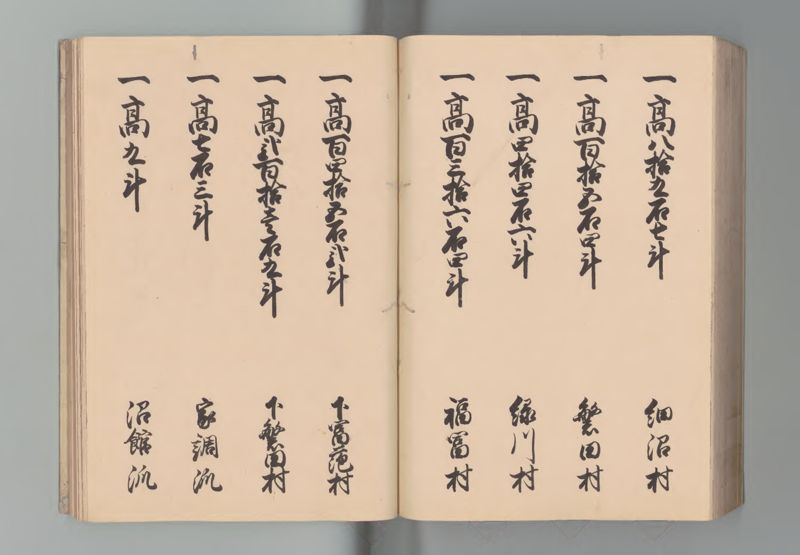 一高八拾九石七斗 細沼村
一高百拾五石四斗 繁田村
一高四拾四石六斗 緑川村
一高百三拾六石四斗 福富村
一高百四拾五石弐斗 下富範村
一高弐百拾壱石九斗 下繁田村
一高七石三斗 家調派
一高九斗 沼館派